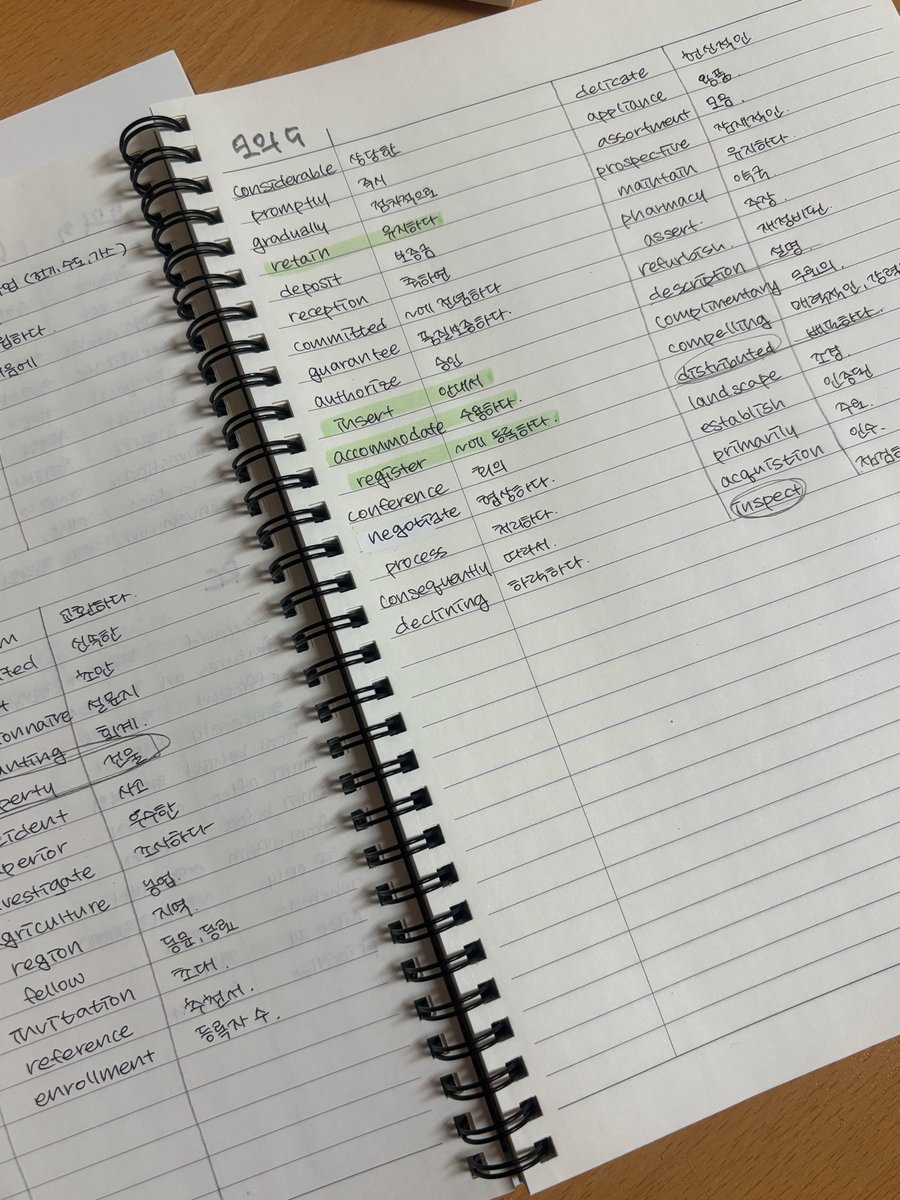 (전기, 수도, 가스)
교환하다.
신속한
설문지
회계.
perty
사고
우수한
vestigate 조사하다
griculture 농업.
region 지역.
fellow 동료, 동료
invitation 초대.
reference 추천서.
enrollment 등록자 수.
모의 5
considerable 상당한
promptly 즉시
gradually 점차적으로
retain 유지하다
deposit 보증금
reception 축하연
committed ~에 전념하다
guarantee 품질보증하다.
authorize 승인
insert 안내서
accommodate 수용하다.
register ~에 등록하다.
conference 회의
negotiate 협상하다.
process 처리하다.
consequently 따라서.
declining 하락하다.
delicate 헌신적인
appliance 용품.
assortment 모음.
prospective 잠재적인.
maintain 유지하다.
pharmacy 약국
assert. 주장.
refurbish.
description 설명.
complimentary 무료의.
compelling 매력적인,
distributed 배포하다.
landscape 조경.
establish
primarily 주로.
acquistion 인수.
inspect